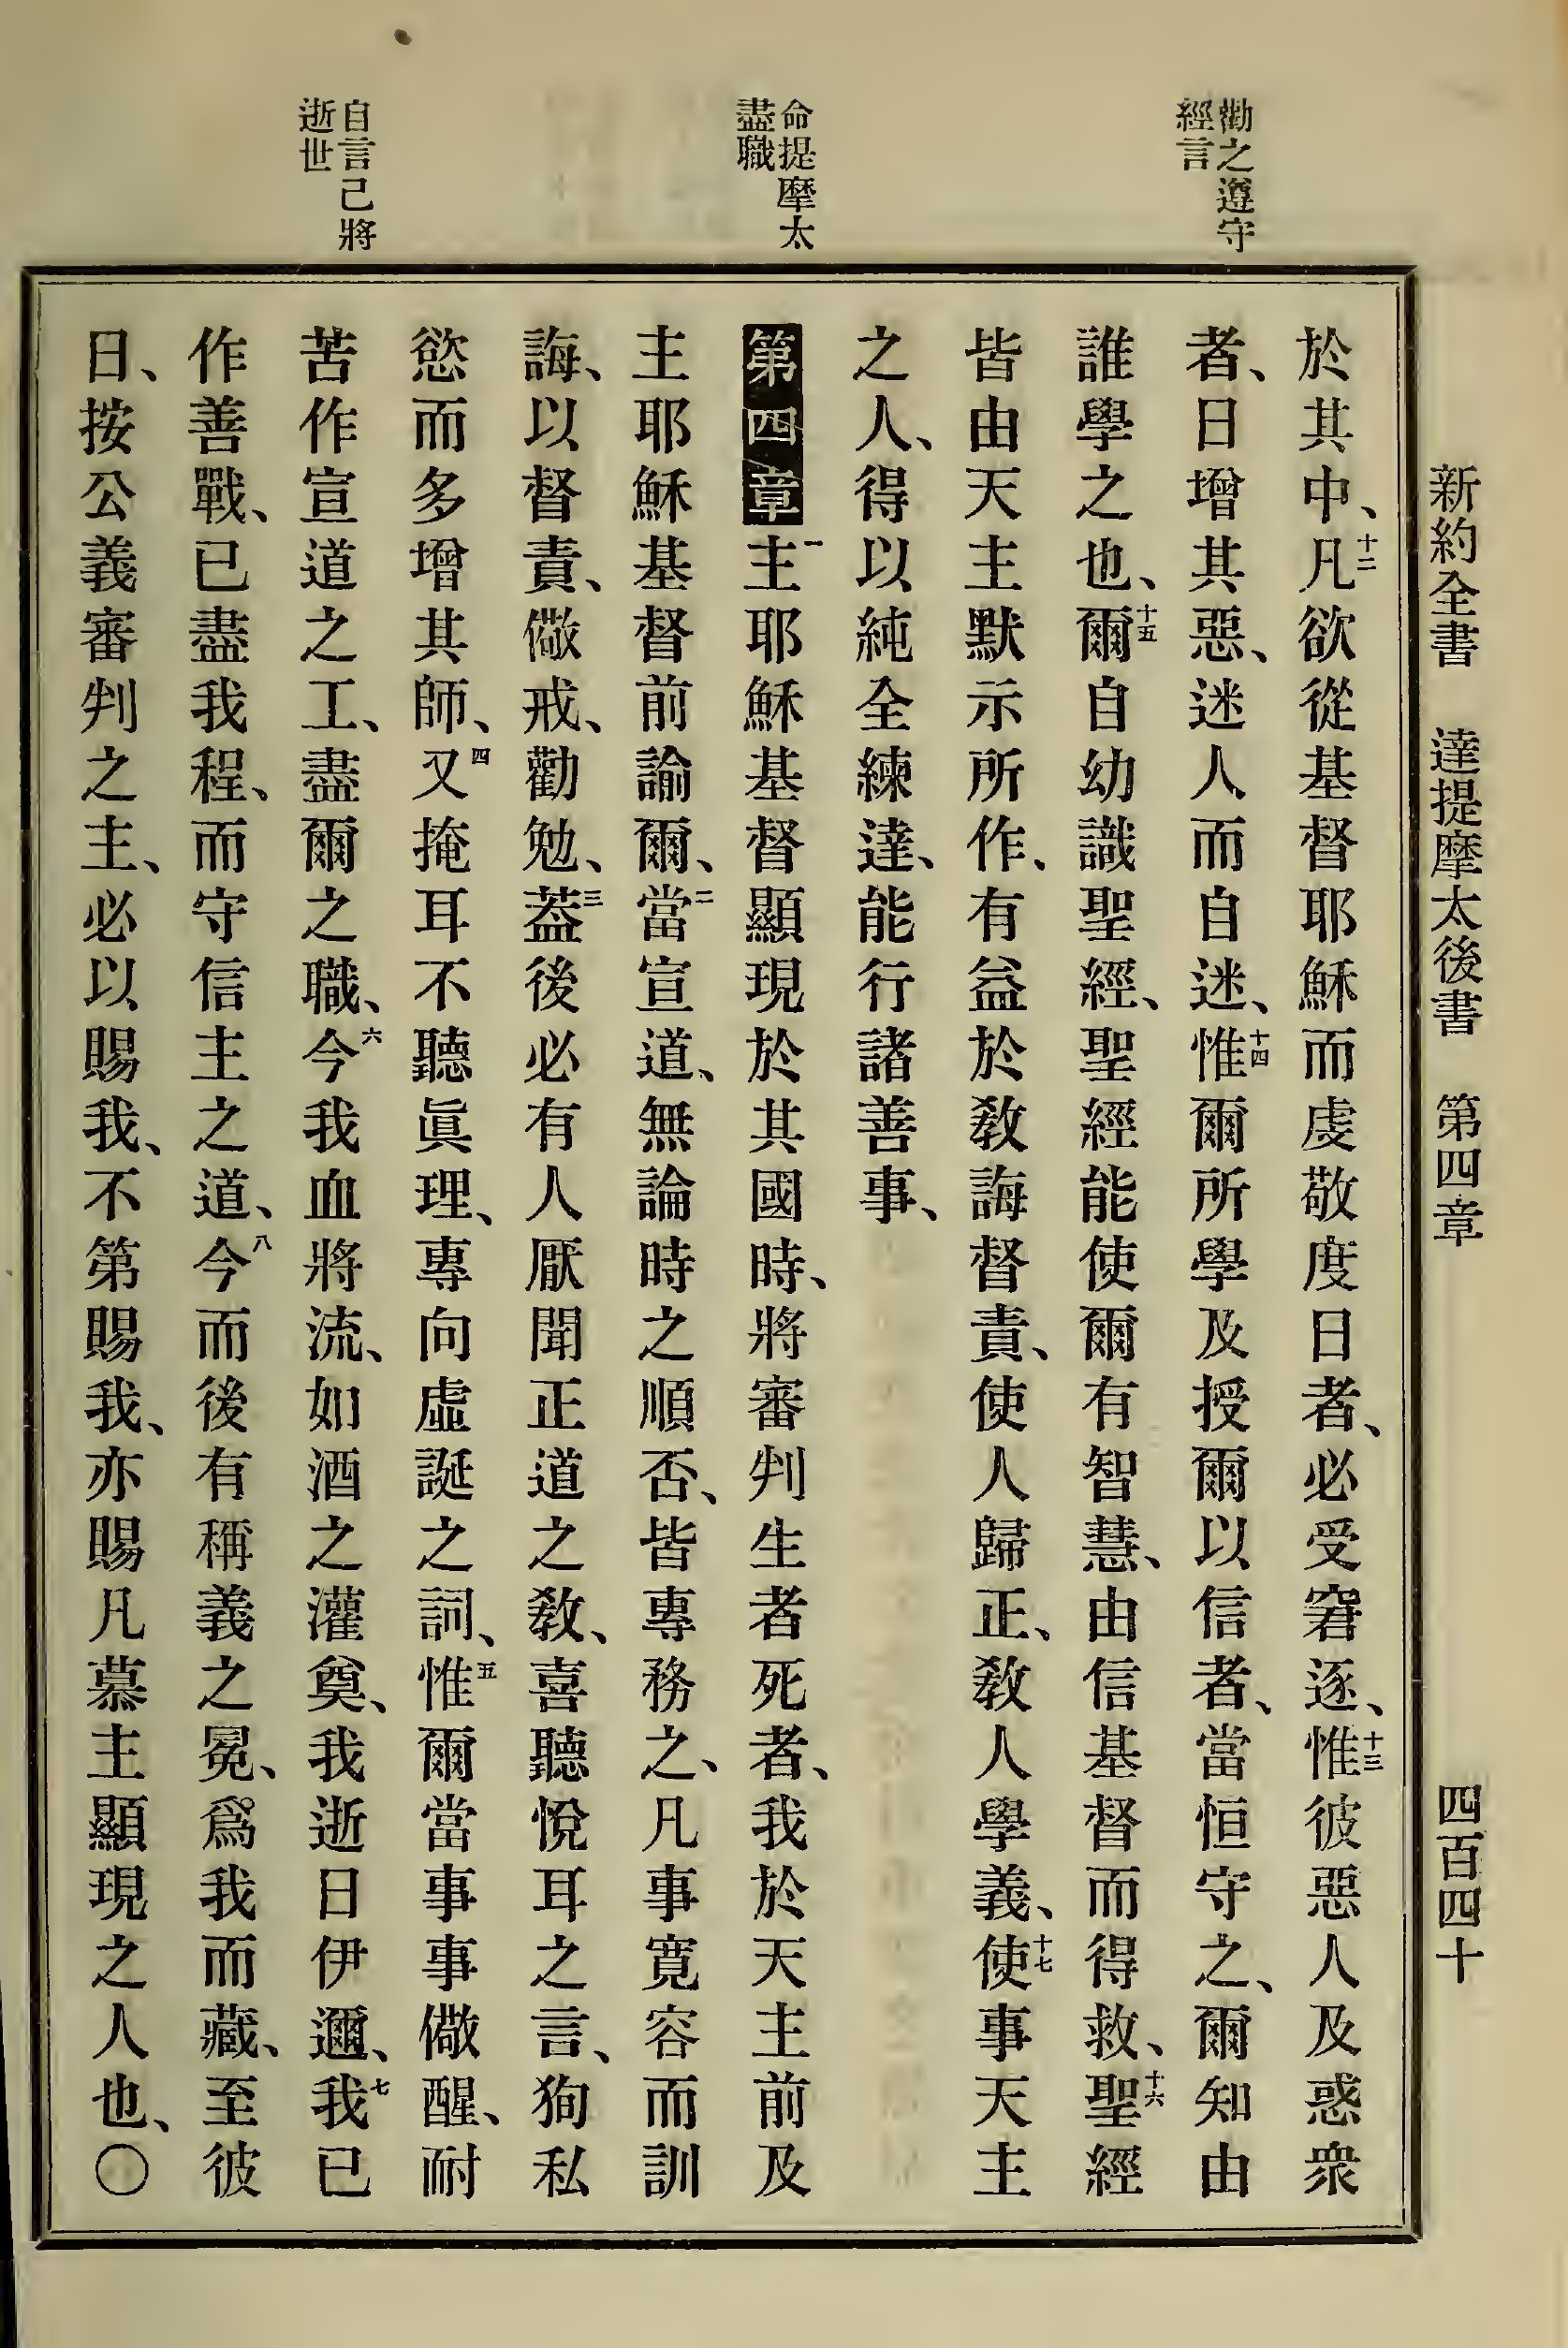 新約全書 達提摩太後書 第四章 四百四十
勸之遵守
經言
命提摩太
盡職
自言己將
逝世
於其中、十二凡欲從基督耶穌而虔敬度日者、必受窘逐、十三惟彼惡人及惑衆
者、日增其惡、迷人而自迷、十四惟爾所學及授爾以信者、當恒守之、爾知由
誰學之也、十五爾自幼識聖經、聖經能使爾有智慧、由信基督而得救、十六聖經
皆由天主默示所作、有益於敎誨督責、使人歸正、敎人學義、十七使事天主
之人、得以純全練達、能行諸善事、
第四章 一主耶穌基督顯現於其國時、將審判生者死者、我於天主前及
主耶穌基督前諭爾、二當宣道、無論時之順否、皆專務之、凡事寬容而訓
誨、以督責、儆戒、勸勉、三蓋後必有人厭聞正道之敎、喜聽悅耳之言、狥私
慾而多增其師、四又掩耳不聽眞理、專向虛誕之詞、五惟爾當事事儆醒、耐
苦作宣道之工、盡爾之職、六今我血將流、如酒之灌奠、我逝日伊邇、七我已
作善戰、已盡我程、而守信主之道、八今而後有稱義之冕、爲我而藏、至彼
日、按公義審判之主、必以賜我、不第賜我、亦賜凡慕主顯現之人也、〇